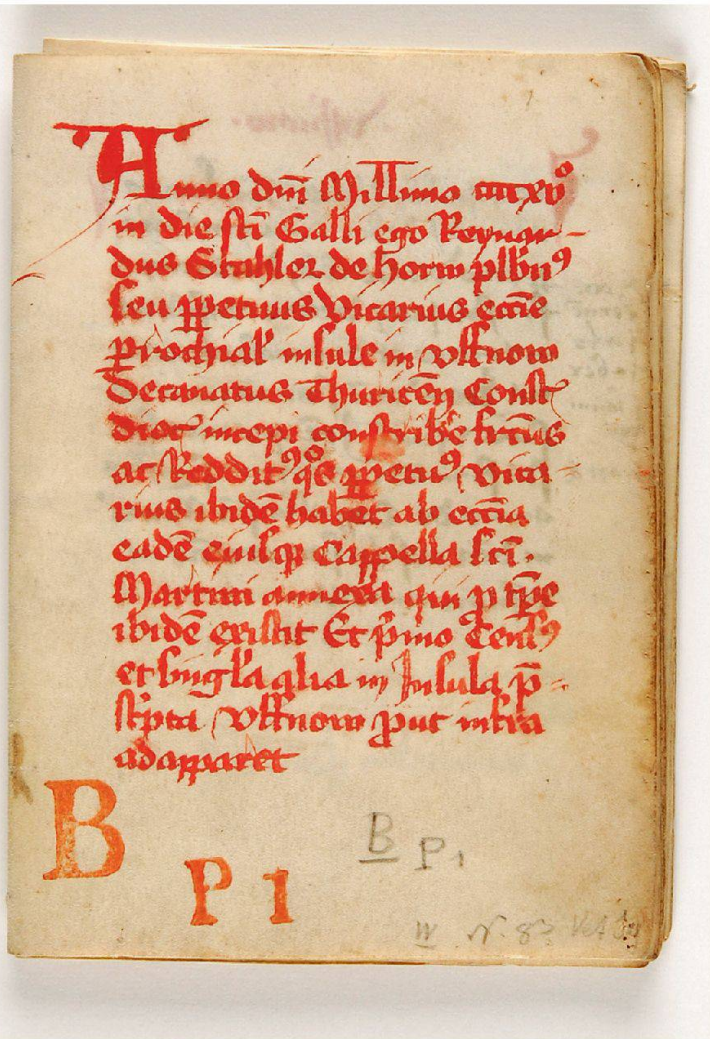 Anno dni Millimo ccccxvo
in die sci Galli ego Reynar-
dus Stahler de horw plbn9
seu ppetuus Vicarius eccie
prochial insule in vffnow
Decanatus Thuriceny Const
dioc incepi conscribe
ac Reddit9 qos ppetu9 Vica-
rius ibidē habet ab eccia
eadē eiusq Cappella sci.
Martini annexa qui p tpe
ibidē existit Et pmo Cens9
et singla alia in Insula p-
scpta vffnow put infra
adapparet
B
P 1
B P 1
N. 83